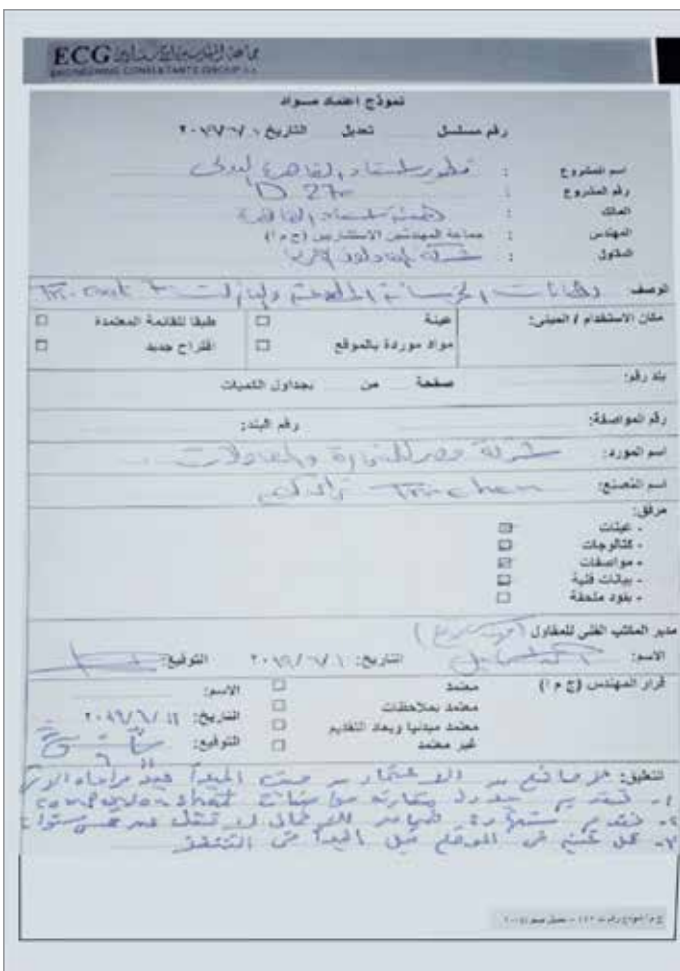 ECG جماعة المهندسين الاستشاريين
ENGINEERING CONSULTANTS GROUP S.A.
نموذج اعتماد مواد
رقم مسلسل تعديل التاريخ
اسم المشروع : تطوير استاد القاهرة الدولى
رقم المشروع :
المالك : هيئة استاد القاهرة
المهندس : جماعة المهندسين الاستشاريين (ج م ا)
المقاول : شركة المقاولون العرب
الوصف دهانات الخرسانة
مكان الاستخدام / المبنى: عينة طبقا للقائمة المعتمدة
مواد موردة بالموقع اقتراح جديد
بند رقم: صفحة من بجداول الكميات
رقم المواصفة: رقم البند:
اسم المورد: شركة مصر للتجارة والمقاولات
اسم المصنع:
مرفق:
- عينات
- كتالوجات
- مواصفات
- بيانات فنية
- بنود ملحقة
مدير المكتب الفني للمقاول
الاسم: التاريخ: التوقيع:
قرار المهندس (ج م ا) معتمد الاسم:
معتمد بملاحظات التاريخ:
معتمد مبدئيا ويعاد التقديم التوقيع:
غير معتمد
التعليق: لا مانع من الاعتماد من حيث المبدأ مع مراعاة
١- تقديم جدول مقارنة
٢- تقديم شهادة ضمان لا تقل عن خمس سنوات
٣- عمل عينة فى الموقع قبل البدأ فى التنفيذ